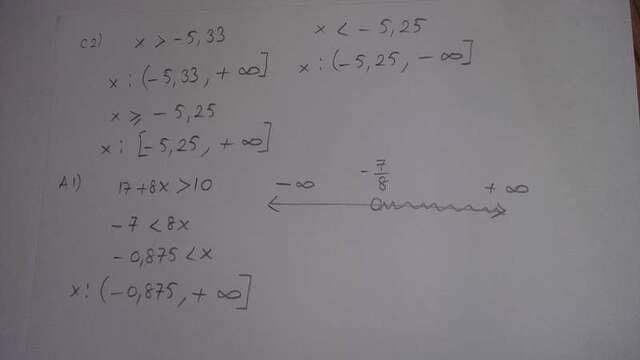 C2) x > -5,33
x : (-5,33, +∞]
x ⩾ -5,25
x : [-5,25, +∞]
x < -5,25
x : (-5,25, -∞]
A1) 17+8x >10
-7 < 8x
-0,875 < x
x : (-0,875, +∞]
-∞ -7/8 +∞